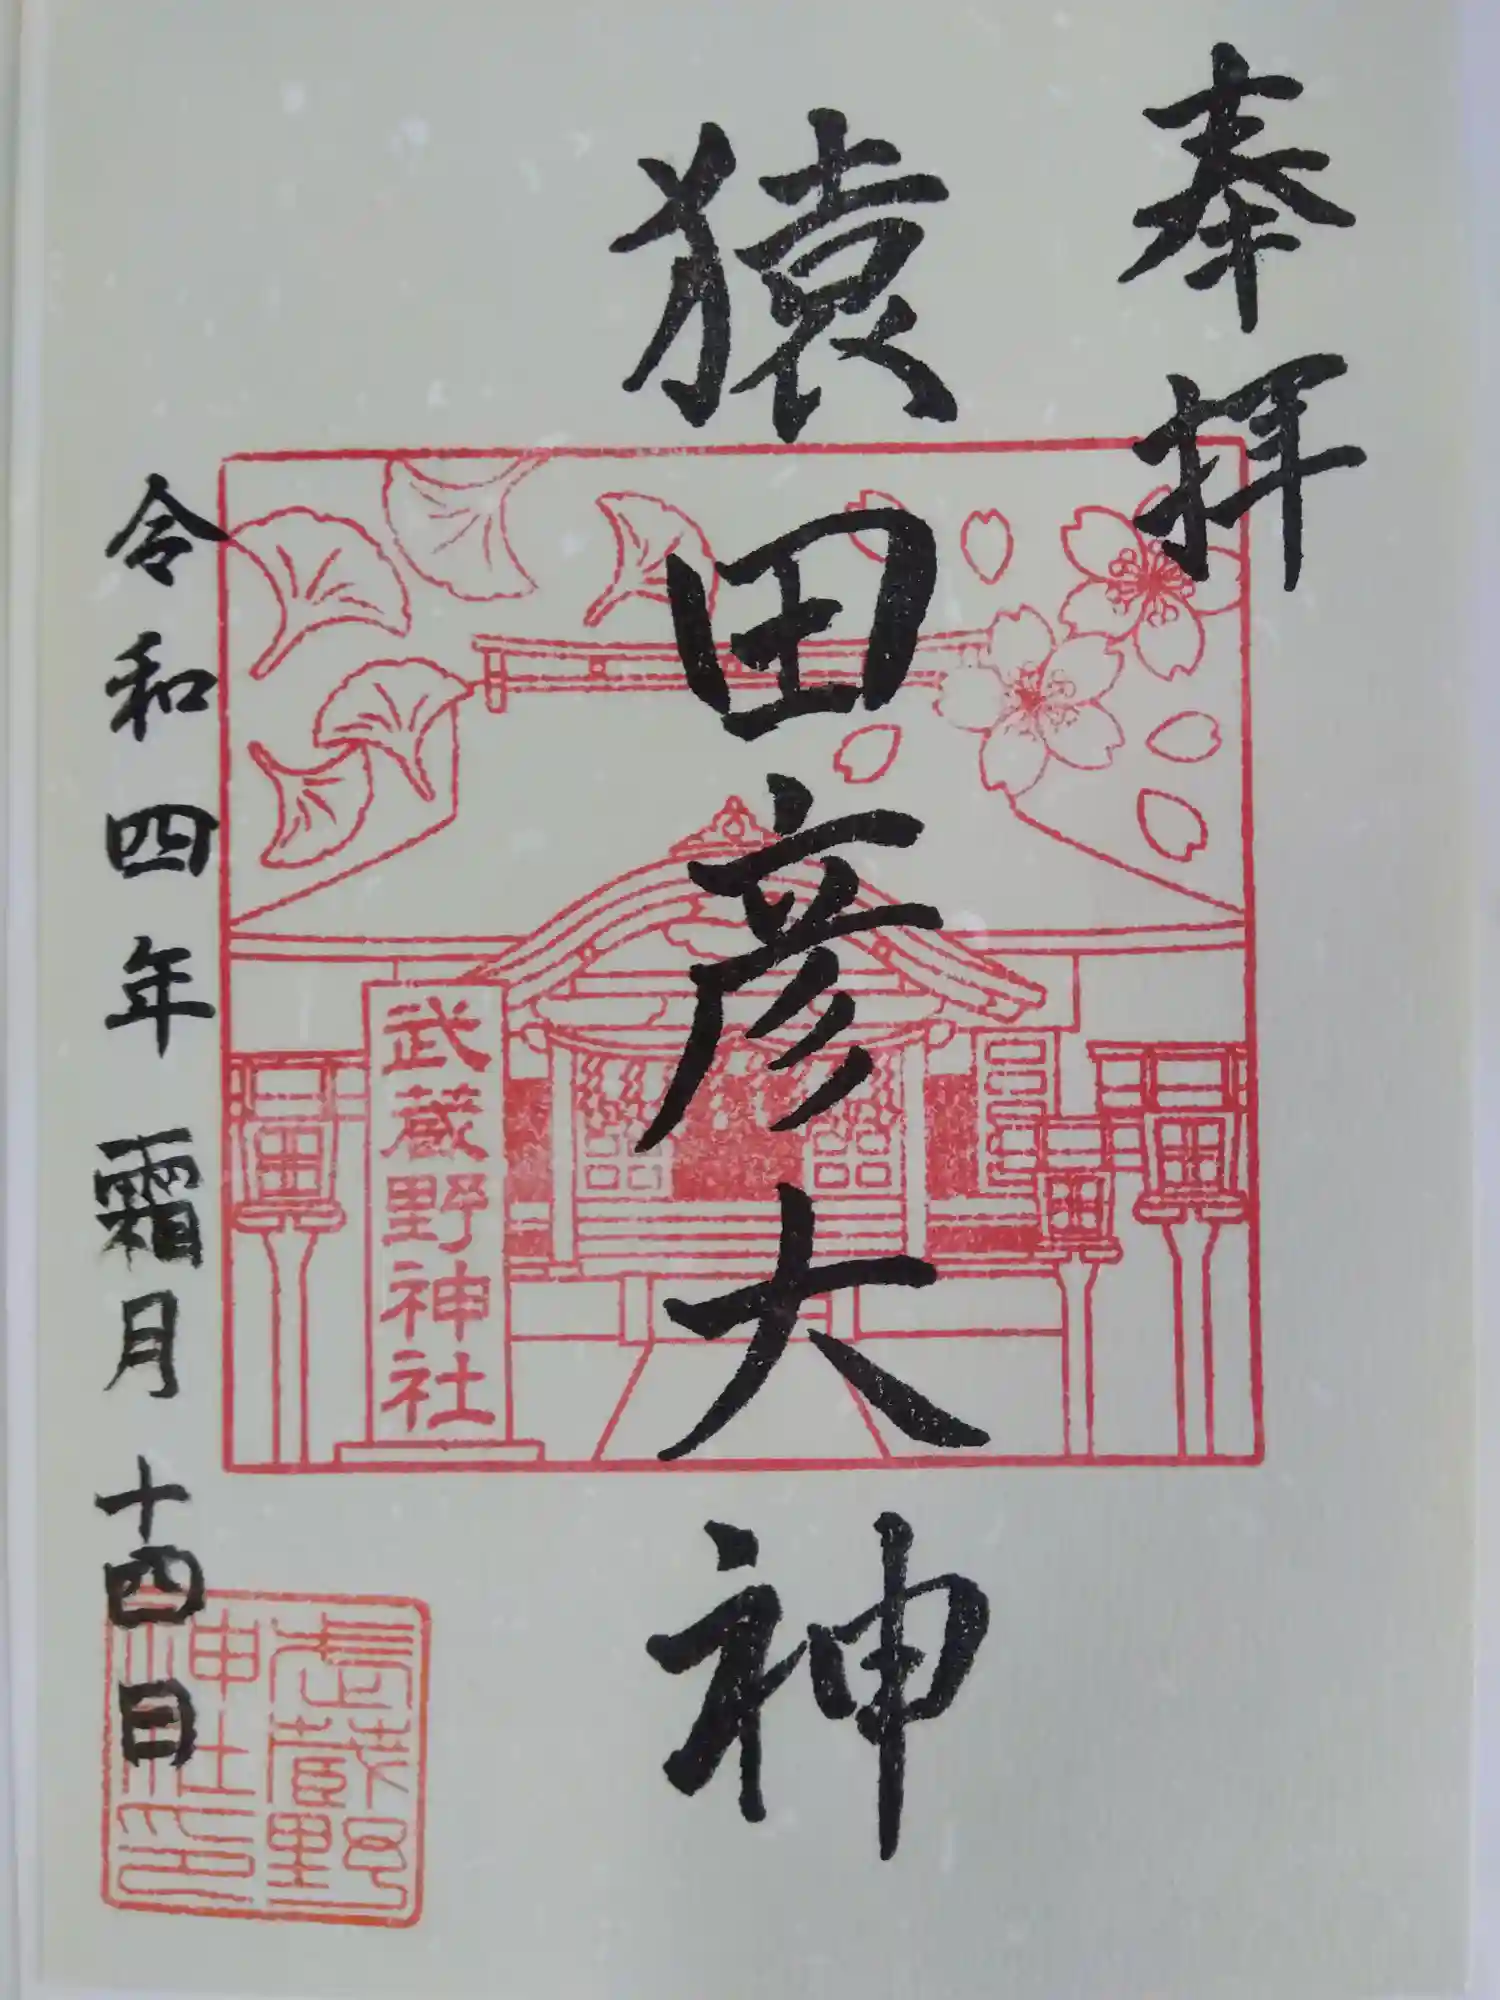 奉拝
猿田彦大神
武蔵野神社
令和四年霜月十四日
武蔵野
神社印